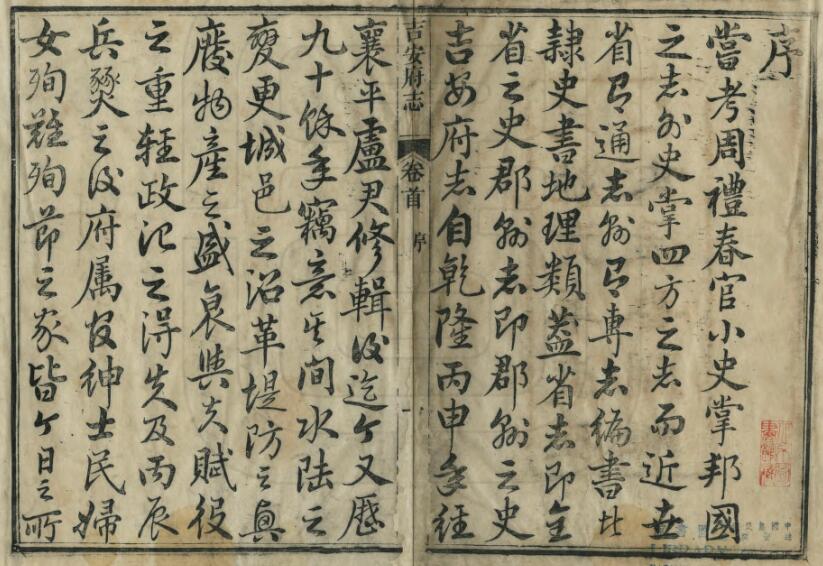 序
嘗考周禮春官小史掌邦國
之志外史掌四方之志而近世
省有通志縣有專志編書比
隷史書地理類蓋省志即全
省之史郡縣志即郡縣之史
吉安府志自乾隆丙申年經
吉安府志 卷首 序 一
襄平盧尹修輯後迄今又歷
九十餘年竊意其間水陸之
變更城邑之沿革堤防之興
廢物產之盛衰與夫賦役
之重輕政治之得失及丙辰
兵燹之後府属官紳士民婦
女殉難殉節之家皆今日之所